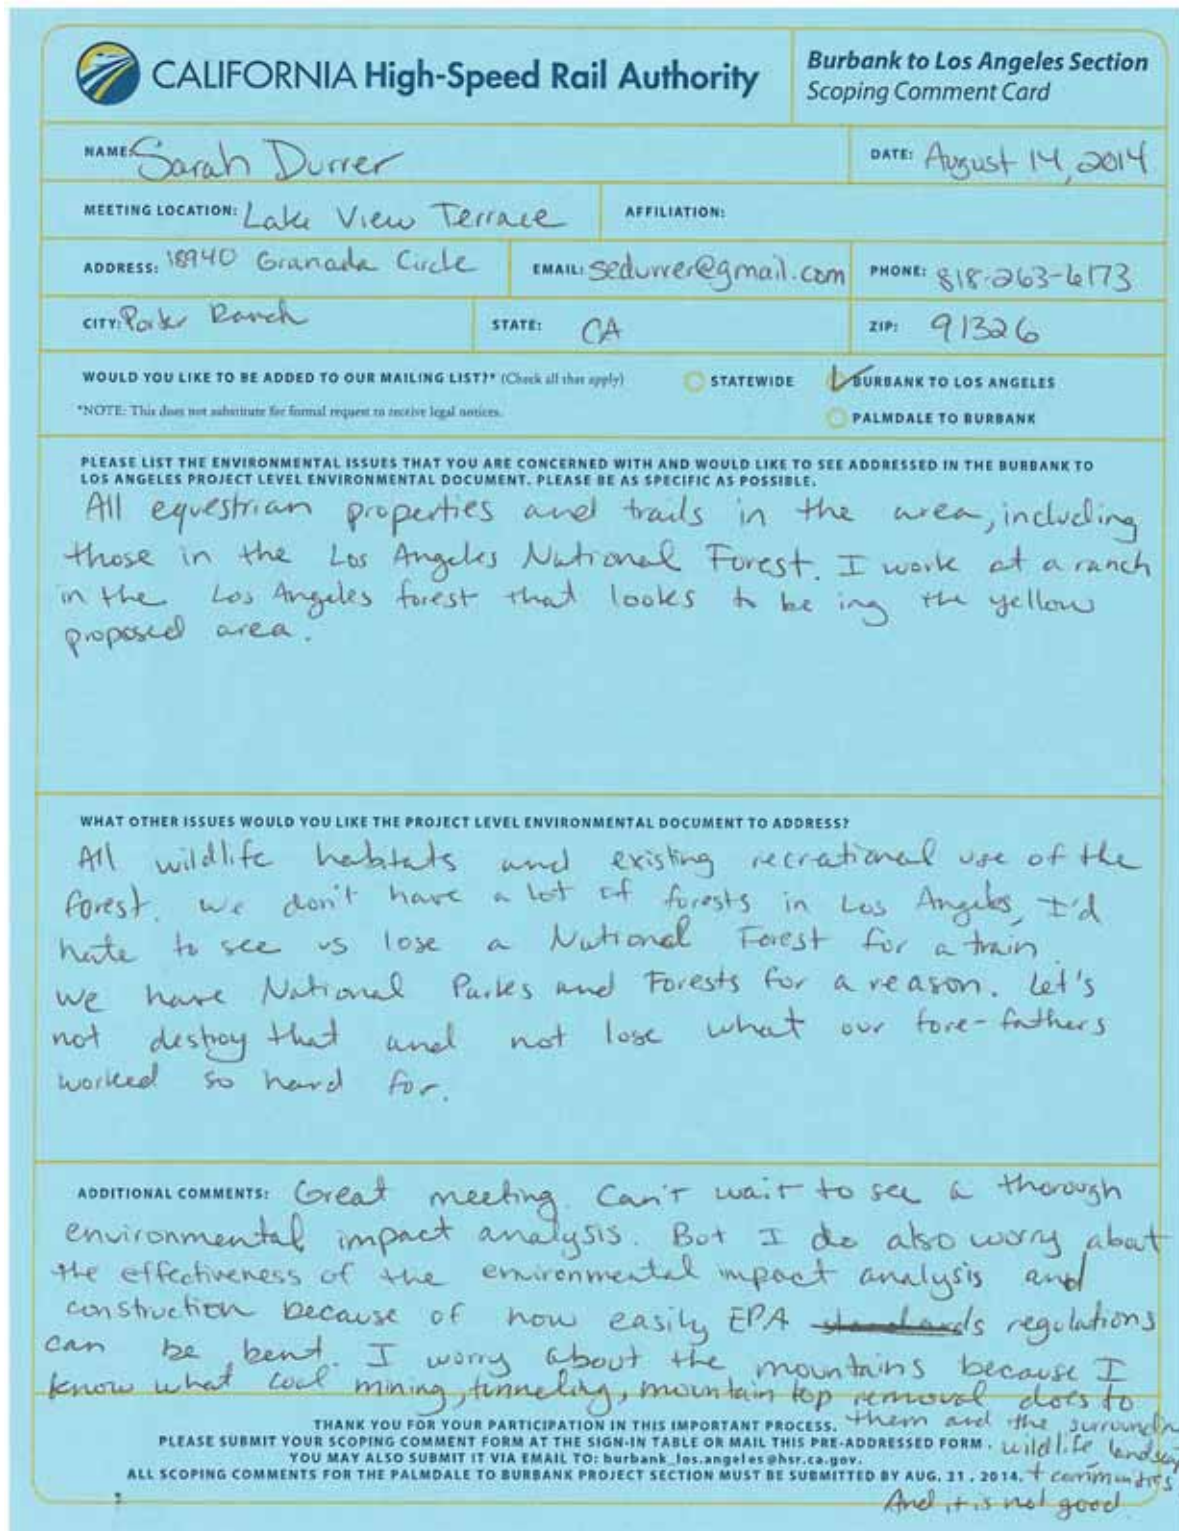 CALIFORNIA High-Speed Rail Authority
Burbank to Los Angeles Section
Scoping Comment Card
NAME: Sarah Durrer
DATE: August 14, 2014
MEETING LOCATION: Lake View Terrace
AFFILIATION:
ADDRESS: 18940 Granada Circle
EMAIL: sedurrer@gmail.com
PHONE: 818-263-6173
CITY: Porter Ranch
STATE: CA
ZIP: 91326
WOULD YOU LIKE TO BE ADDED TO OUR MAILING LIST?* (Check all that apply)
STATEWIDE
BURBANK TO LOS ANGELES
*NOTE: This does not substitute for formal request to receive legal notices.
PALMDALE TO BURBANK
PLEASE LIST THE ENVIRONMENTAL ISSUES THAT YOU ARE CONCERNED WITH AND WOULD LIKE TO SEE ADDRESSED IN THE BURBANK TO
LOS ANGELES PROJECT LEVEL ENVIRONMENTAL DOCUMENT. PLEASE BE AS SPECIFIC AS POSSIBLE.
All equestrian properties and trails in the area, including
those in the Los Angeles National Forest. I work at a ranch
in the Los Angeles forest that looks to be ing the yellow
proposed area.
WHAT OTHER ISSUES WOULD YOU LIKE THE PROJECT LEVEL ENVIRONMENTAL DOCUMENT TO ADDRESS?
All wildlife habitats and existing recrational use of the
forest. We don't have a lot of forests in Los Angeles, I'd
hate to see us lose a National Forest for a train.
We have National Parks and Forests for a reason. Let's
not destroy that and not lose what our fore-fathers
worked so hard for.
ADDITIONAL COMMENTS: Great meeting. Can't wait to see a thorough
environmental impact analysis. But I do also worry about
the effectiveness of the environmental impact analysis and
construction because of how easily EPA standards regulations
can be bent. I worry about the mountains because I
know what coal mining, tunneling, mountain top removal does to
them and the surrounding
wildlife, landscape
+ communities
And it is not good.
THANK YOU FOR YOUR PARTICIPATION IN THIS IMPORTANT PROCESS.
PLEASE SUBMIT YOUR SCOPING COMMENT FORM AT THE SIGN-IN TABLE OR MAIL THIS PRE-ADDRESSED FORM.
YOU MAY ALSO SUBMIT IT VIA EMAIL TO: burbank_los.angeles@hsr.ca.gov.
ALL SCOPING COMMENTS FOR THE PALMDALE TO BURBANK PROJECT SECTION MUST BE SUBMITTED BY AUG. 31, 2014.